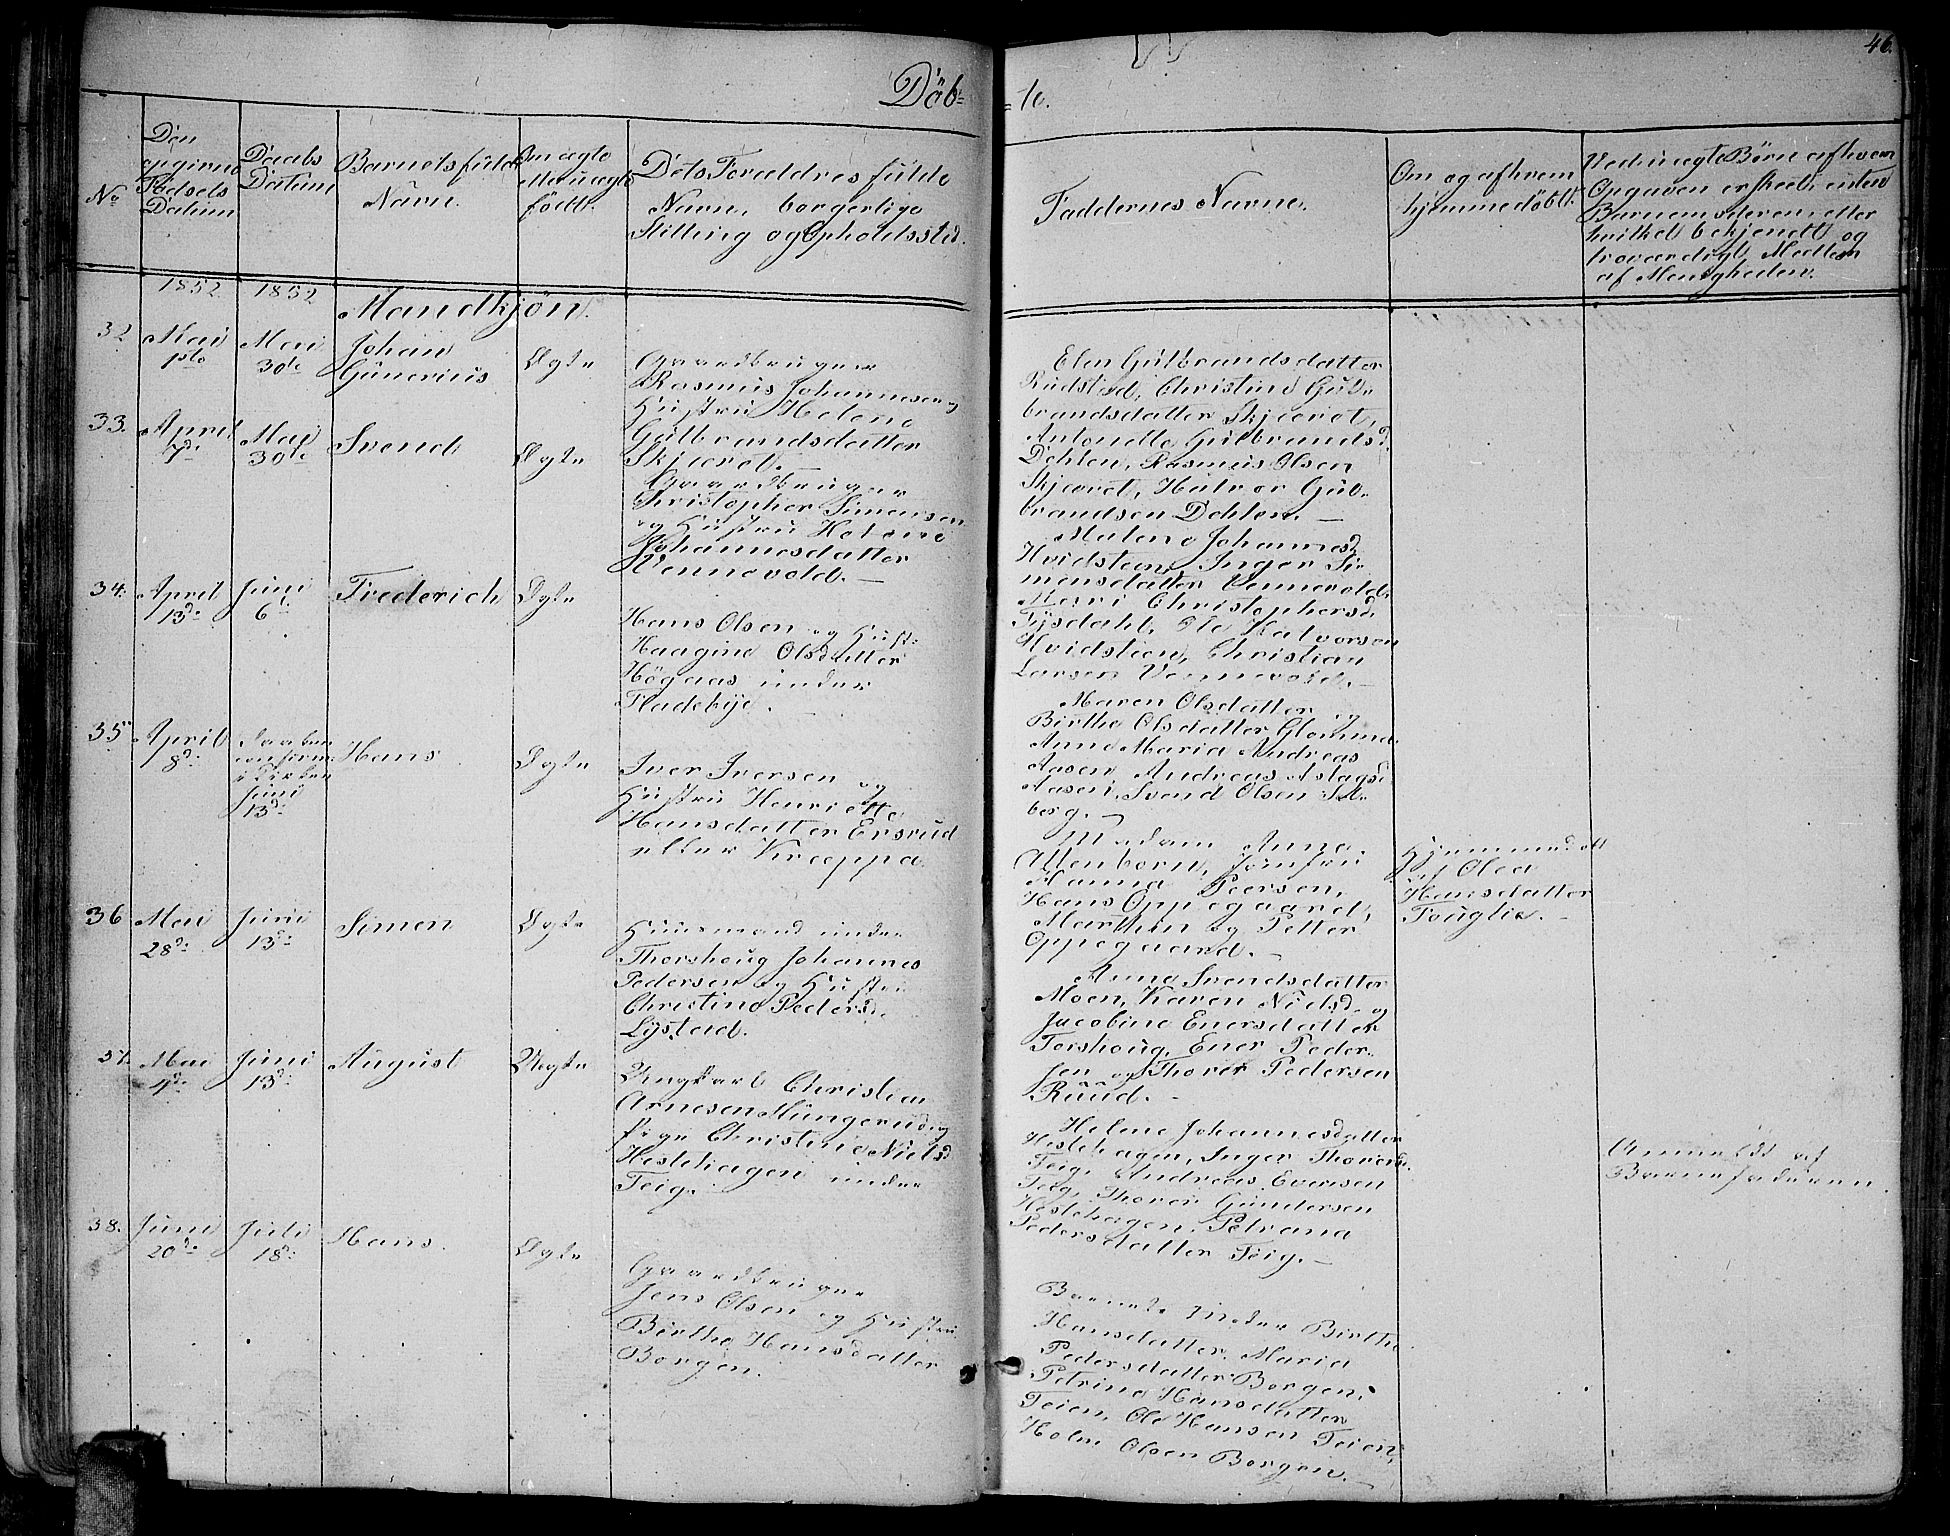 46.
Döb=
=te.
No
Den
opgivne
Födsels
Datum
Daabs
Datum
Barnets fulde
Navn.
Om ægte
eller uægte
födt.
Dets Forældres fulde
Navn, borgerlige
Stilling og Opholdssted.
Faddernes Navne.
Om og af hvem
hjemmedöbt.
Ved uægte Börn af hvem
Opgaven er skeet, enten
Barnemoderen, eller
hvilket bekjendt og
troværdigt Medlem
af Menigheden.
1852
1852
Mandkjön.
32
Mai
1ste
Mai
30te
Johan
Gunerius
Ægte
Gaardbruger
Rasmus Johannesen og
Hustru Helene
Gulbrandsdatter
Skjæret.
Elen Gulbrandsdatter
Rudstad, Christine Gul-
brandsdatter Skjæret,
Antonette Gulbrandsd.
Dehlen, Rasmus Olsen
Skjæret, Halvor Gul-
brandsen Dehlen. —
33.
April
7de
Mai
30te
Svend
Ægte
Gaardbruger
Christopher Simensen
og Hustru Helene
Johannesdatter
Vennevold. —
Malene Johannesd.
Hvidsteen, Inger Si-
mensdatter Vennevold,
Marri Christophersd.
Tysdahl, Ole Halvorsen
Hvidstien, Christian
Larsen Vennevold. —
34.
April
13de
Juni
6te
Frederich
Ægte
Hans Olsen og Hust.
Haagine Olsdatter
Högaas under
Fladebye. —
Maren Olsdatter,
Birthe Olsdatter Glomma
Anne Maria Andreas
Aasen, Andreas Aslags.
Aasen, Svend Olsen Sol-
berg. —
35
April
8de
Daaben
confirm.
i Kirken
Juni
13de
Hans
Ægte
Iver Iversen og
Hustru Henriette
Hansdatter Ersrud
eller Kræppa.
Madam Anna
Altenborn, Jomfru
Hanna Peersen,
Hans Oppegaard,
Marthin og Petter
Oppegaard. —
Hjemmedöbt
af Olea
Hansdatter
Fouglie. —
36
Mai
28de
Juni
13de
Simen
Ægte
Huusmand under
Thorshoug Johannes
Pedersen og Hustru
Christine Pedersd.
Lystad.
Anna Svendsdatter
Moen, Karen Nielsd. og
Jacobine Enersdatter
Torshoug, Ener Peder-
sen og Thorer Pedersen
Ruud. —
37.
Mai
4de
Juni
13de
August
Uægte
Ungkarl Christian
Arnesen Mungerud og
Pige Christine Nielsd
Heslehagen under
Teig.
Helene Johannesdatter
Heslehagen, Inger Thorersd.
Teig, Andreas Evensen
Teig, Thorer Gundersen
Heslehagen, Petrana
Pedersdatter Teig. —
Anmeldt af
Barnefaderen.
38.
Juni
20de
Juli
18de
Hans.
Ægte
Gaardbruger
Jens Olsen og Hustru
Birthe Hansdatter
Borgen.
Barnets Moder Birthe
Hansdatter, Maria
Pedersdatter Borgen,
Petrine Hansdatter
Teien, Ole Hansen Teien,
Holm Olsen Borgen. —